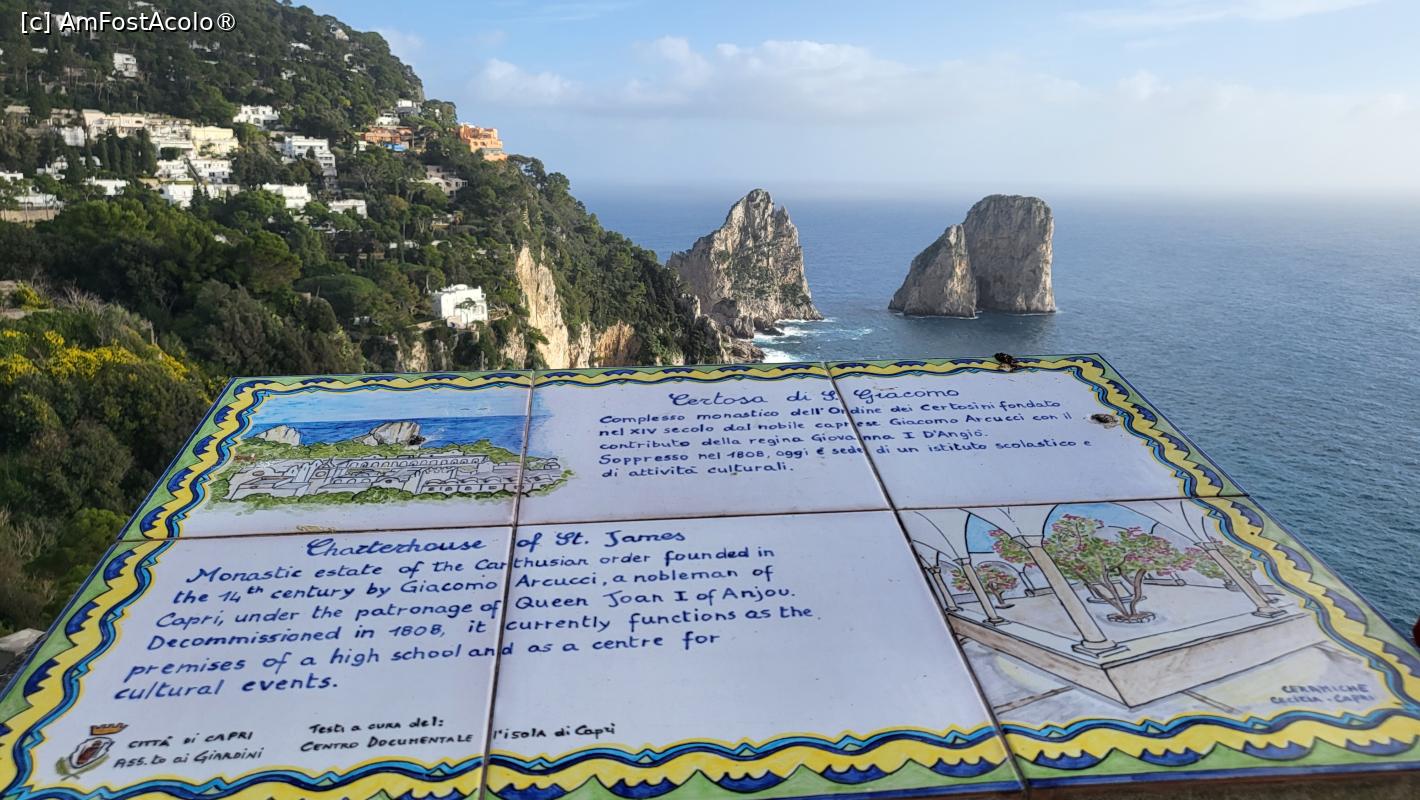 [c] AmFostAcolo®
Certosa di S. Giacomo
Complesso monastico dell'Ordine dei Certosini fondato
nel XIV secolo dal nobile caprese Giacomo Arcucci con il
contributo della regina Giovanna I D'Angiò.
Soppresso nel 1808, oggi è sede di un istituto scolastico e
di attività culturali.
Charterhouse of St. James
Monastic estate of the Carthusian order founded in
the 14th century by Giacomo Arcucci, a nobleman of
Capri, under the patronage of Queen Joan I of Anjou.
Decommissioned in 1808, it currently functions as the
premises of a high school and as a centre for
cultural events.
CITTÀ DI CAPRI
ASS.to ai GIARDINI
Testi a cura del:
CENTRO DOCUMENTALE l'isola di Capri
CERAMICHE
CECILIA - CAPRI